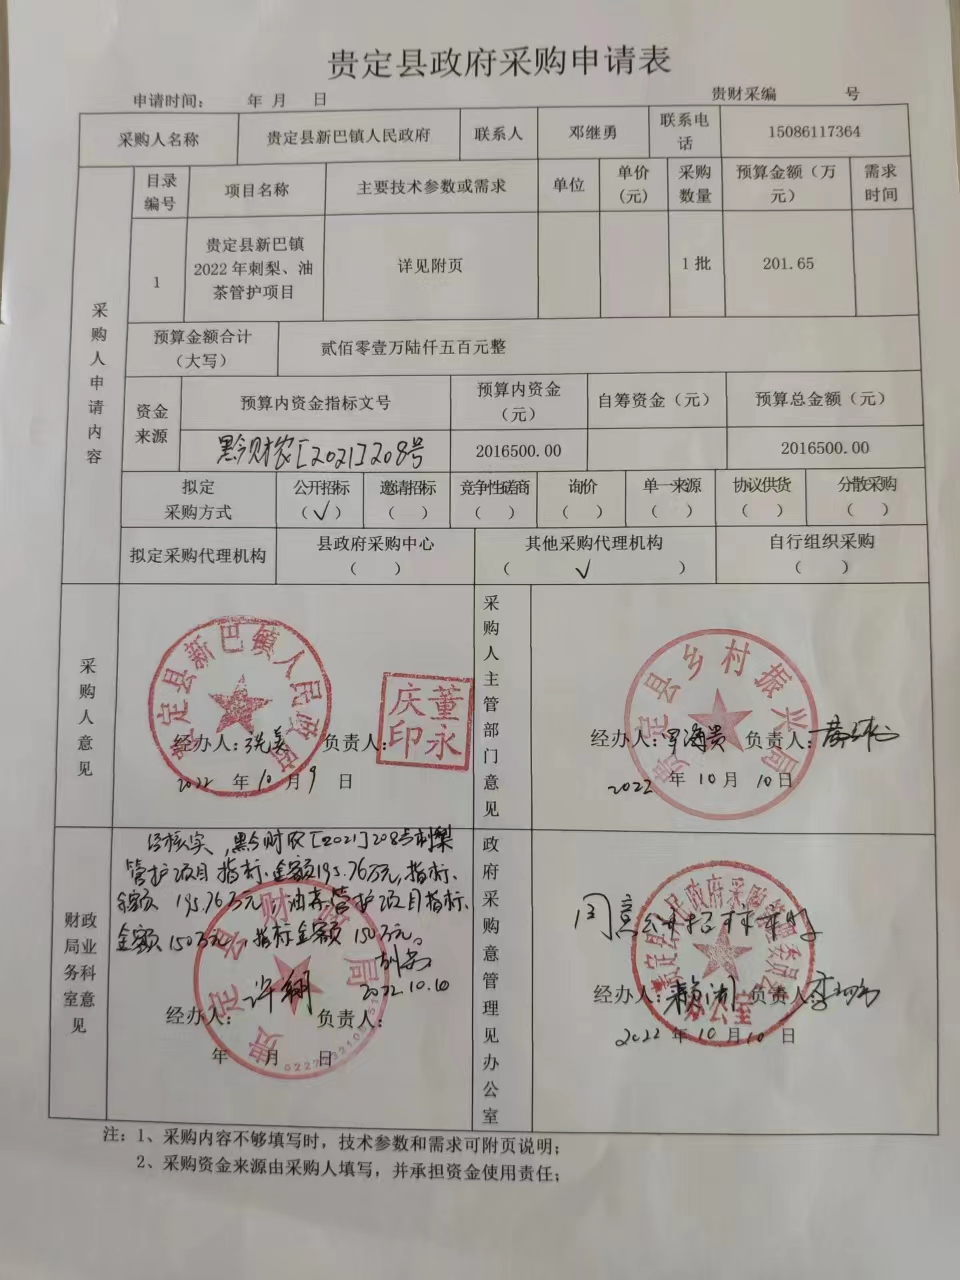 贵定县政府采购申请表
申请时间： 年 月 日 贵财采编 号
采购人名称 贵定县新巴镇人民政府 联系人 邓继勇 联系电话 15086117364
采购人申请内容
目录编号 项目名称 主要技术参数或需求 单位 单价(元) 采购数量 预算金额（万元） 需求时间
1 贵定县新巴镇2022年刺梨、油茶管护项目 详见附页 1批 201.65
预算金额合计（大写） 贰佰零壹万陆仟五百元整
资金来源 预算内资金指标文号 预算内资金（元） 自筹资金（元） 预算总金额（元）
黔财农[2021]208号 2016500.00 2016500.00
拟定采购方式 公开招标（√） 邀请招标（ ） 竞争性磋商（ ） 询价（ ） 单一来源（ ） 协议供货（ ） 分散采购（ ）
拟定采购代理机构 县政府采购中心（ ） 其他采购代理机构（ √ ） 自行组织采购（ ）
采购人意见
贵定县新巴镇人民政府
董永庆印
经办人： 负责人：
2022 年 10 月 9 日
采购人主管部门意见
贵定县乡村振兴局
经办人：罗海贵 负责人：
2022 年 10 月 10 日
财政局业务科室意见
经核实，黔财农[2021]208号刺梨
管护项目指标、金额195.76万元，指标、
金额 195.76万元；油茶管护项目指标、
金额150万元，指标金额 150万元。
2022.10.10
贵定县财政局
经办人：许翔 负责人：
年 月 日
政府采购管理办公室意见
同意公开招标采购
贵定县人民政府采购管理委员会办公室
经办人： 负责人：
2022 年 10 月 10 日
注：1、采购内容不够填写时，技术参数和需求可附页说明；
2、采购资金来源由采购人填写，并承担资金使用责任；